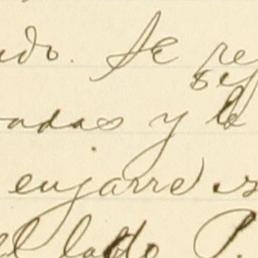 ido. Se re
adas y lo
enjarre s
el lado P.